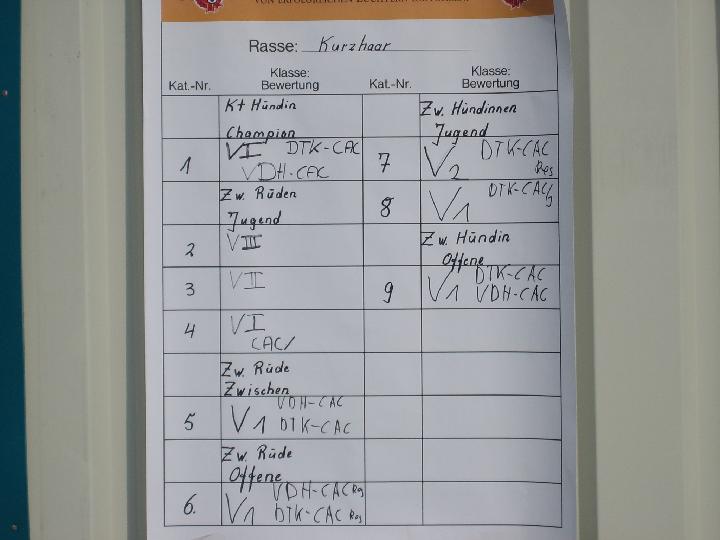 VON ERFOLGREICHEN ZÜCHTERN
Rasse: Kurzhaar
Kat.-Nr.
Klasse:
Bewertung
Kt Hündin
Champion
1
VI DTK-CAC
VDH-CAC
Zw. Rüden
Jugend
2
VIII
3
VII
4
VI
CAC/
Zw. Rüde
Zwischen
5
VDH-CAC
V1 DTK-CAC
Zw. Rüde
Offene
6.
VDH-CAC
V1 DTK-CAC Res
Kat.-Nr.
Klasse:
Bewertung
Zw. Hündinnen
Jugend
7
V2 DTK-CAC
Res
8
V1 DTK-CAC/
Zw. Hündin
Offene
9
DTK-CAC
V1 VDH-CAC